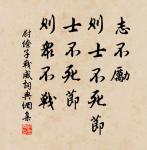 志不勵
則士不死節
士不死節
則眾不戰
尉繚子戰威詞典網集